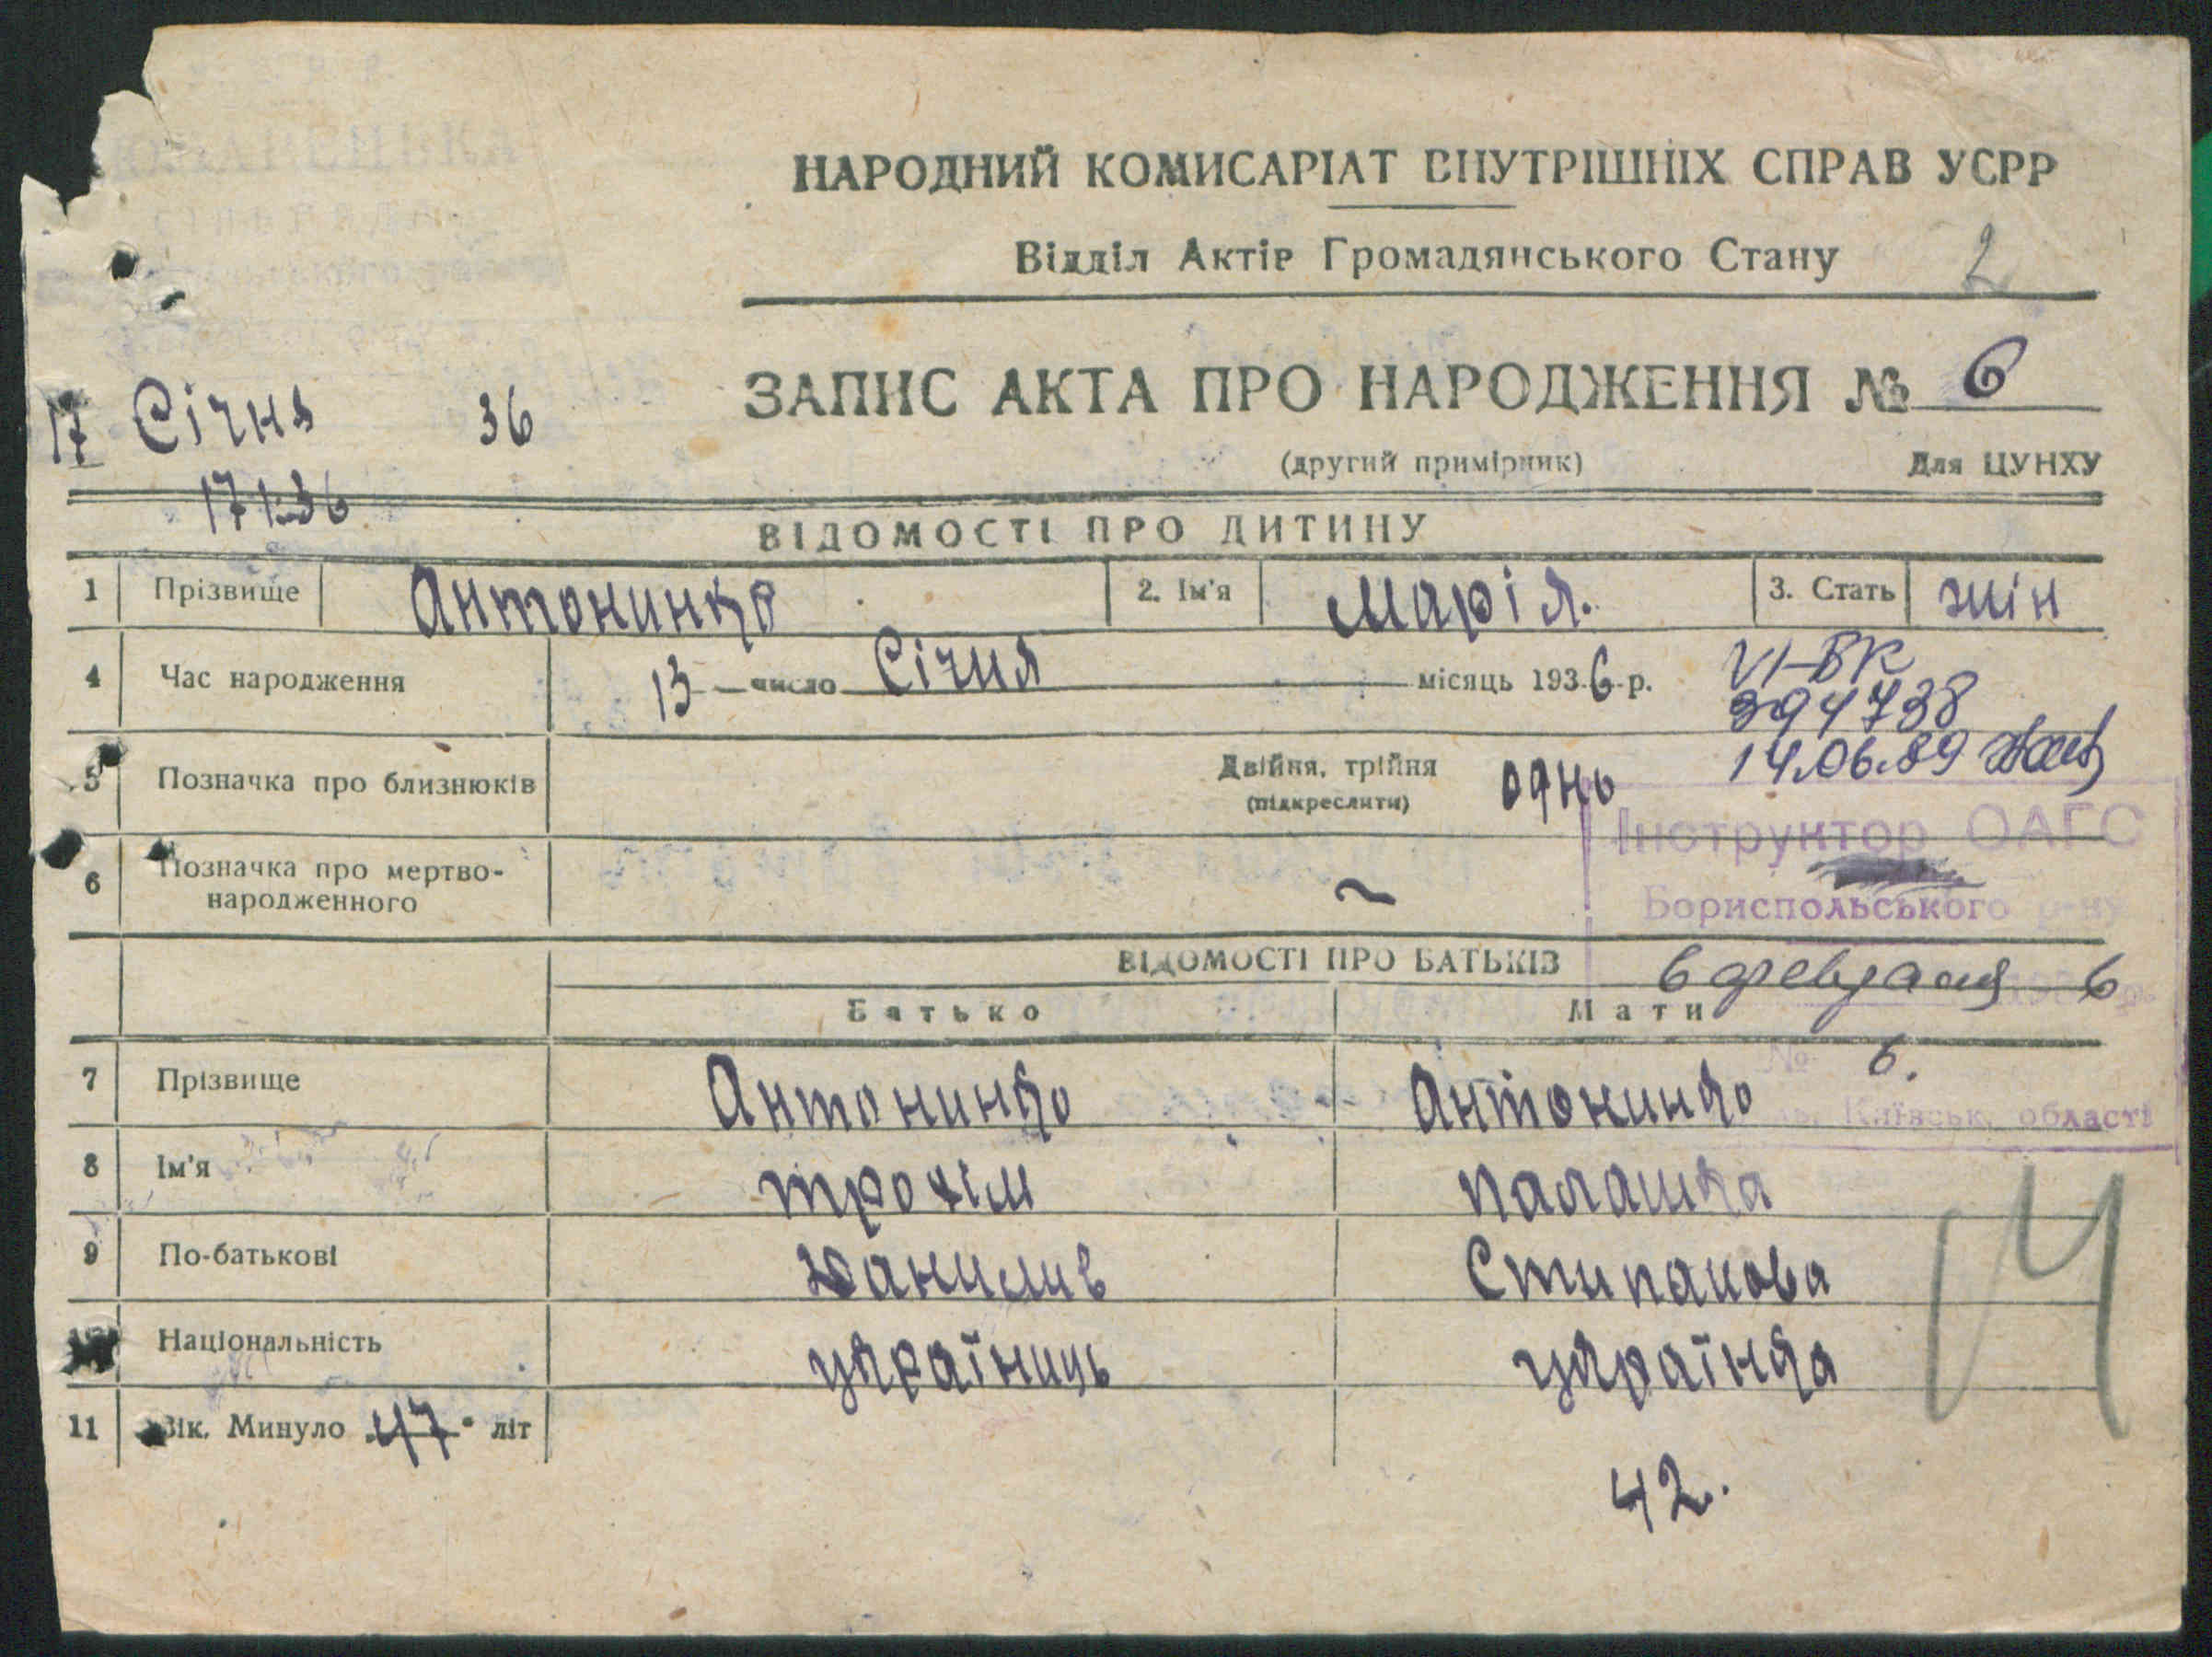 НАРОДНИЙ КОМИСАРІАТ ВНУТРІШНІХ СПРАВ УСРР
Відділ Актів Громадянського Стану 2
ЗАПИС АКТА ПРО НАРОДЖЕННЯ № 6
17 Січня 36
(другий примірник) Для ЦУНХУ
17 1 36
ВІДОМОСТІ ПРО ДИТИНУ
1 Прізвище Антонинко 2. Ім'я Марія. 3. Стать жін
4 Час народження 13 число Січня місяць 1936 р.
VI-БК
394738
14.06.89
5 Позначка про близнюків Двійня, трійня (підкреслити) однь
Інструктор ОАГС
6 Позначка про мертво-
народженного ~
Бориспольського р-ну
ВІДОМОСТІ ПРО БАТЬКІВ
6 февраля 6
Батько Мати
№ 6.
7 Прізвище Антонинко Антонинко
Київськ. області
8 Ім'я трохім палашка
9 По-батькові Данилив Степанова
Національність україниць українка
11 Вік. Минуло 47 літ
42.